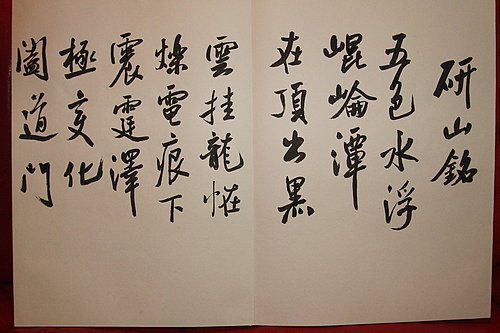 研山銘
五色水浮
崐崘潭
在頂出黑
雲挂龍恠
爍電痕下
震霆澤
極變化
闔道門